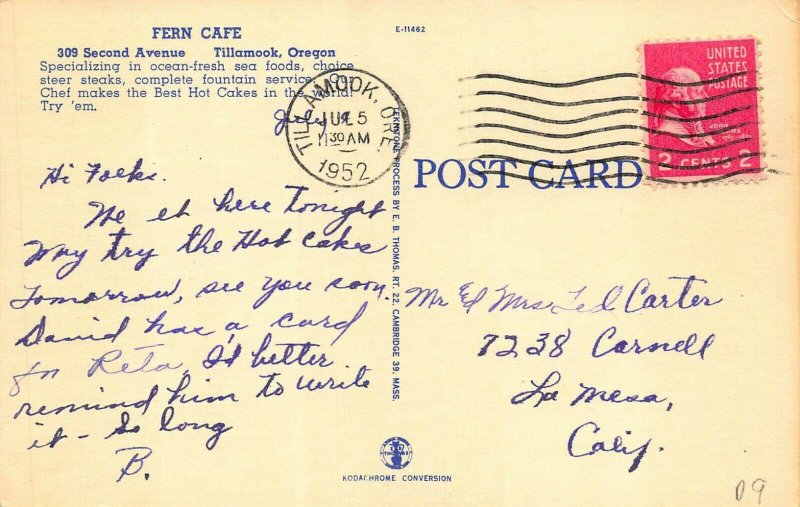 FERN CAFE
309 Second Avenue Tillamook, Oregon
Specializing in ocean-fresh sea foods, choice
steer steaks, complete fountain service. Our
Chef makes the Best Hot Cakes in the world!
Try 'em.
E-11462
TILLAMOOK, ORE.
JUL 5
11 30 AM
1952
UNITED
STATES
POSTAGE
JOHN
2 CENTS 2
July 4
Hi Folks.
We et here tonight
May try the Hot Cakes
tomorrow, see you soon.
David has a card
for Reta, I'd better
remind him to write
it - So long
B.
TEKNTONE PROCESS BY E. B. THOMAS, RT. 22, CAMBRIDGE 39, MASS.
POST CARD
Mr Ed Mrs Ted Carter
7238 Cornell
La Mesa,
Calif.
THOMAS
KODACHROME CONVERSION
D9